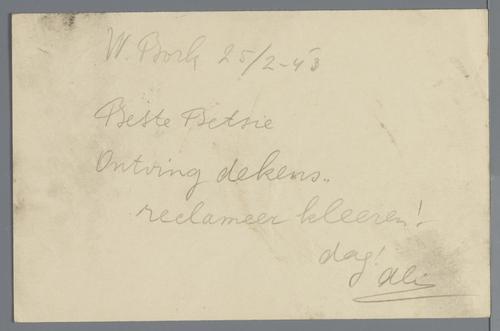 W. Bork 25/2-43
Beste Betsie
Ontving dekens..
reclameer kleeren!
dag!
Ali